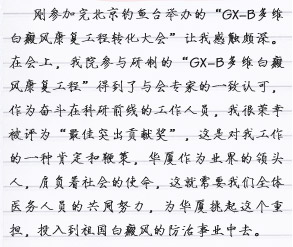 刚参加完北京钓鱼台举办的“GX-B多维
白癜风康复工程转化大会”让我感触颇深。
在会上，我院参与研制的“GX-B多维白癜
风康复工程”得到了与会专家的一致认可，
作为奋斗在科研前线的工作人员，我很荣幸
被评为“最佳突出贡献奖”，这是对我工作
的一种肯定和鞭策，华厦作为业界的领头
人，肩负着社会的使命，这就需要我们全体
医务人员的共同努力，为华厦挑起这个重
担，投入到祖国白癜风的防治事业中去。